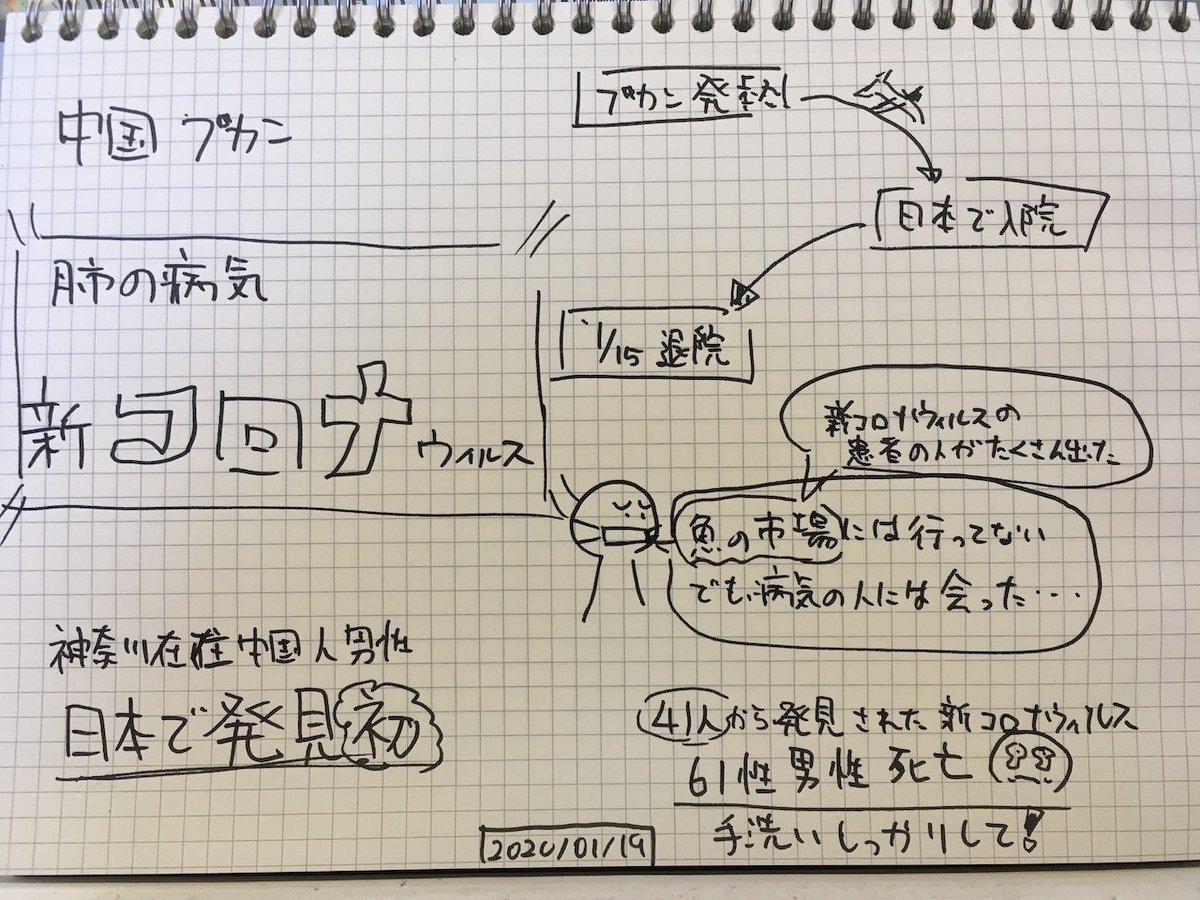 中国 ブカン
肺の病気
新コロナウィルス
神奈川在住中国人男性
日本で発見初
ブカン 発熱
日本で入院
1/15 退院
新コロナウィルスの
患者の人がたくさん出た
魚の市場には行ってない
でも病気の人には会った・・・
41人から発見された新コロナウィルス
61性男性 死亡
手洗いしっかりして!
2020/01/19